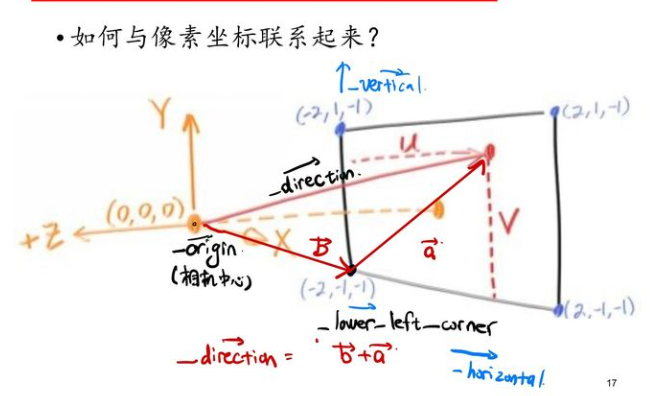 • 如何与像素坐标联系起来？
_vertical
Y
(-2,1,-1)
(2,1,-1)
u
_direction
(0,0,0)
+Z
X
_origin
(相机中心)
B
a
V
(-2,-1,-1)
(2,-1,-1)
_lower_left_corner
_direction = b+a
_horizontal
17